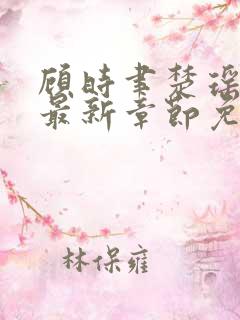 顾时聿楚瑶
最新章节免
林保雍